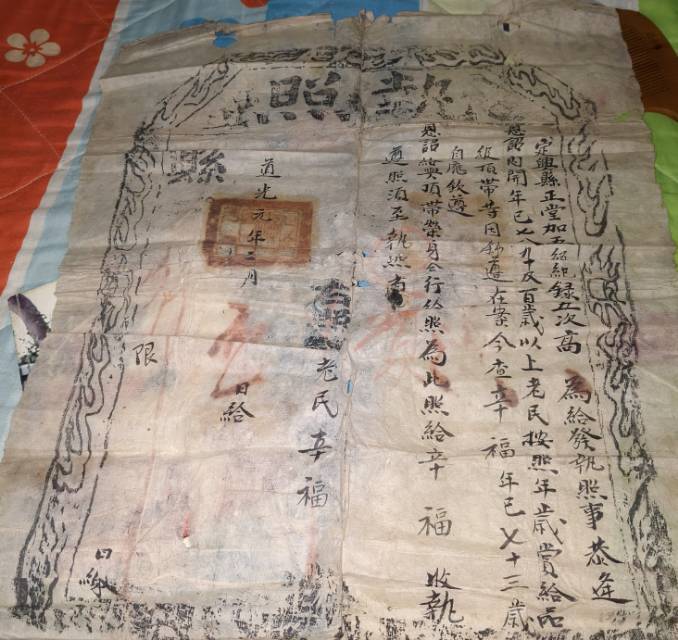 執照
定興縣正堂加五級紀錄五次高 為給發執照事恭逢
恩詔內開年已七八九十及百歲以上老民按照年歲賞給品
級頂帶等因欽遵在案今查辛福年已七十三歲
自應欽遵
恩詔給與頂帶榮身合行給照為此照給辛福收執
遵照須至執照者
右照老民辛福
道光元年二月 日給
縣
限 日繳